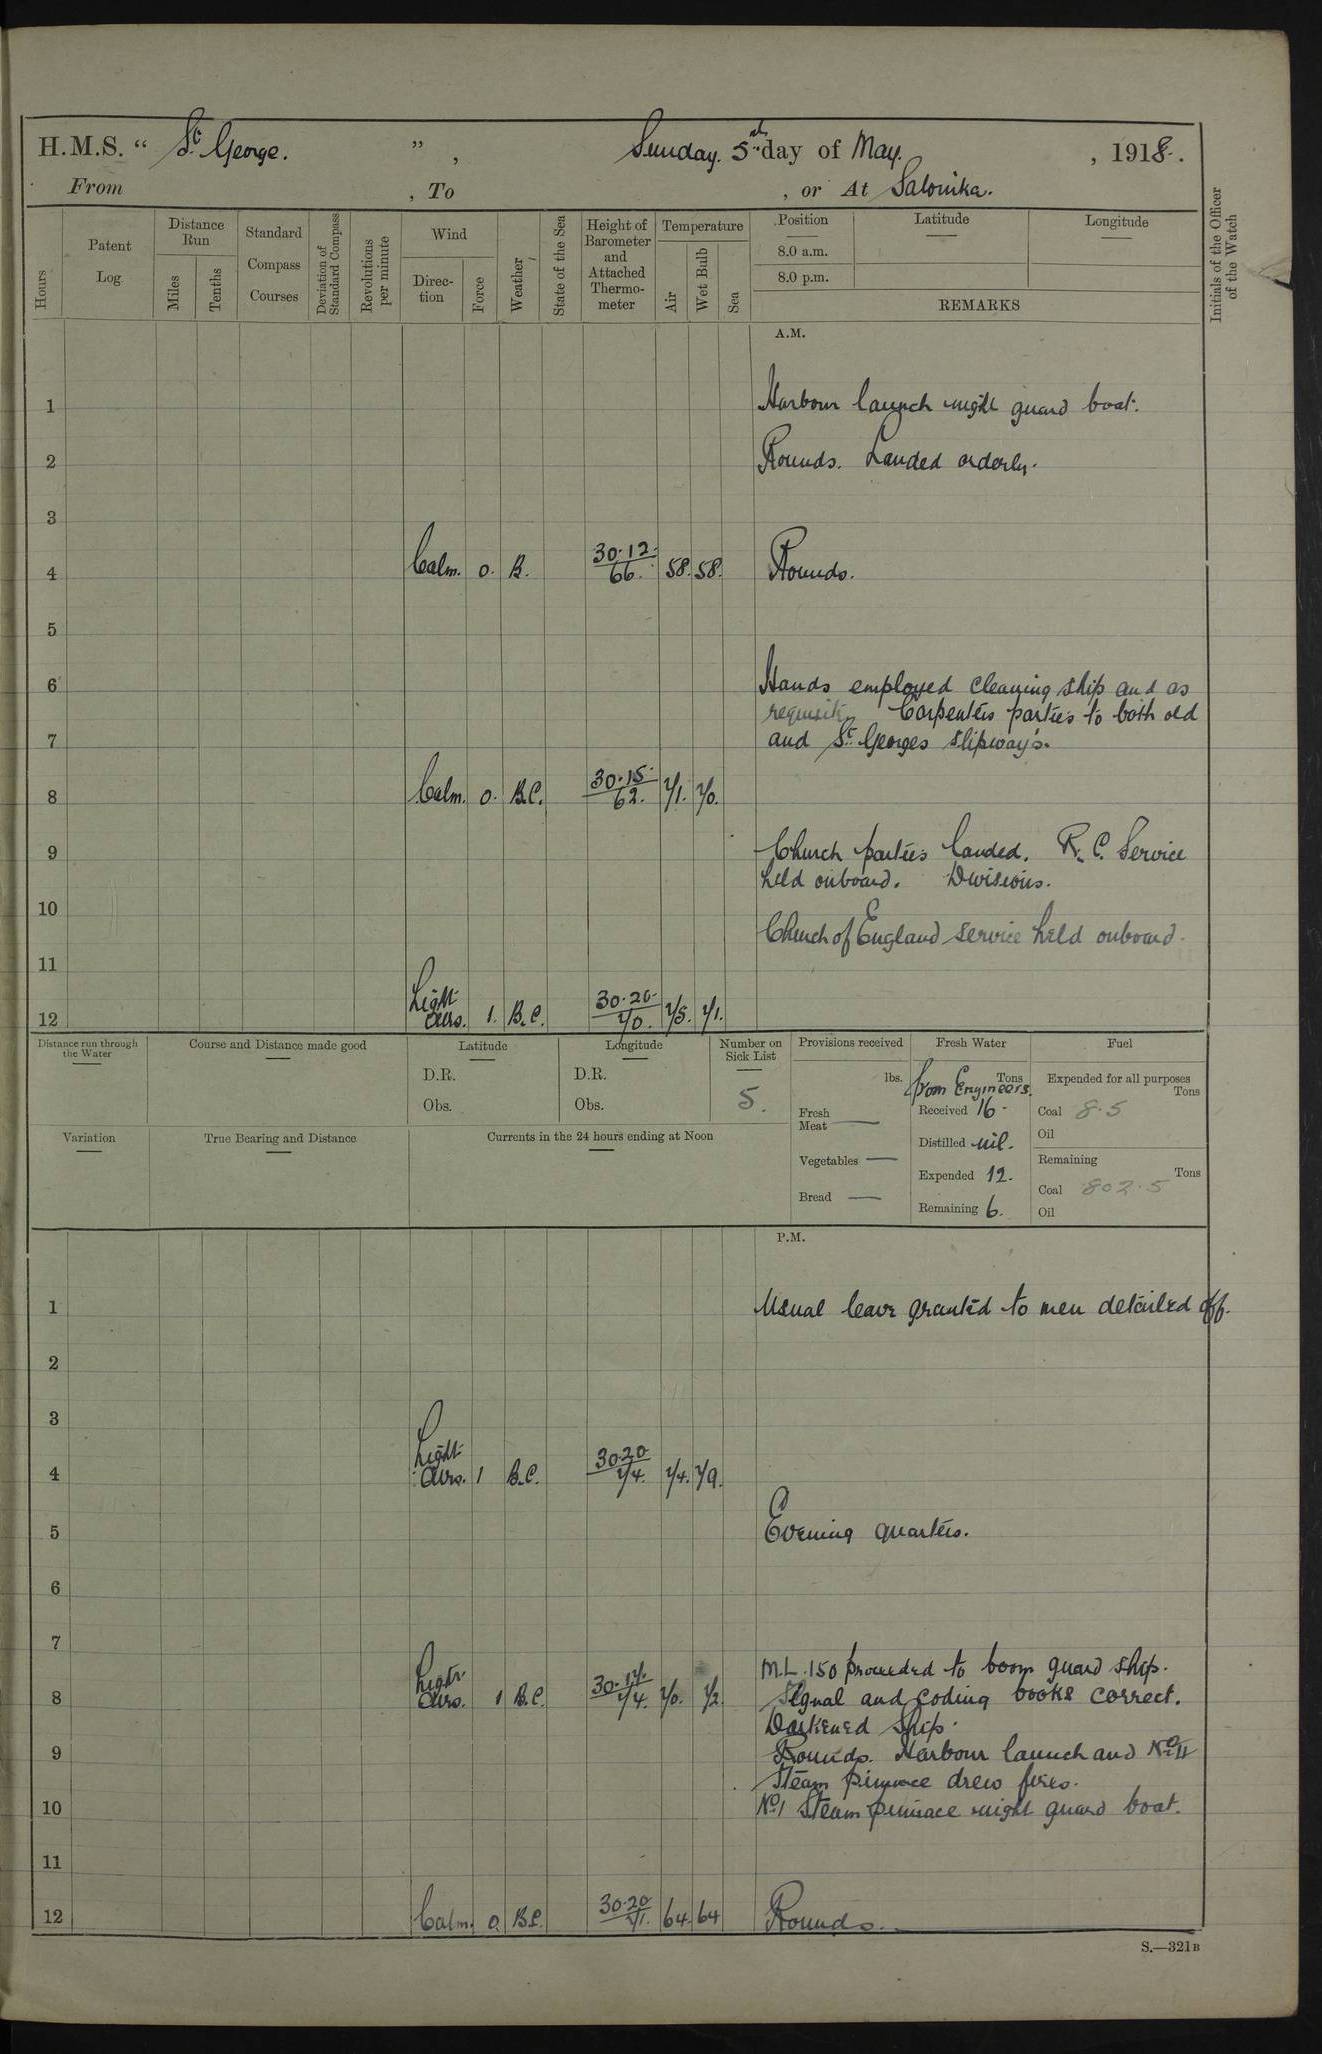 H.M.S. “ St George. ” , Sunday. 5th day of May. , 1918.
From , To , or At Salonika.
Hours
Patent Log
Distance Run
Miles
Tenths
Standard Compass Courses
Deviation of Standard Compass
Revolutions per minute
Wind
Direction
Force
Weather
State of the Sea
Height of Barometer and Attached Thermometer
Temperature
Air
Wet Bulb
Sea
Position
8.0 a.m.
8.0 p.m.
Latitude
Longitude
REMARKS
Initials of the Officer of the Watch
A.M.
1 Harbour launch night guard boat.
2 Rounds. Landed orderly.
3
4 Calm. 0. B. 30.12 66. 58. 58. Rounds.
5
6 Hands employed cleaning ship and as
requisite. Carpenters parties to both old
7 and St. Georges slipway's.
8 Calm. 0. B.C. 30.15 62. 71. 70.
9 Church parties landed. R.C. Service
held onboard. Divisions.
10 Church of England service held onboard.
11
12 Light airs. 1. B.C. 30.20 70. 75. 71.
Distance run through the Water
Course and Distance made good
Latitude
D.R.
Obs.
Longitude
D.R.
Obs.
Number on Sick List
5.
Provisions received
lbs.
Fresh Meat —
Vegetables —
Bread —
Fresh Water
Tons
from Engineers.
Received 16
Distilled nil.
Expended 12.
Remaining 6.
Fuel
Expended for all purposes
Tons
Coal 8.5
Oil
Remaining
Tons
Coal 802.5
Oil
Variation
True Bearing and Distance
Currents in the 24 hours ending at Noon
P.M.
1 Usual leave granted to men detailed off.
2
3
4 Light airs. 1 B.C. 30.20 74. 74.
5 Evening quarters.
6
7 M.L. 150 proceeded to boom guard ship.
8 Light airs. 1 B.C. 30.17 74. 70. 72. Signal and coding books correct.
Darkened ship.
9 Rounds. Harbour launch and No II
steam pinnace drew fires.
10 No 1 Steam pinnace night guard boat.
11
12 Calm. 0. B.C. 30.20 71. 64. 64 Rounds.
S.—321B